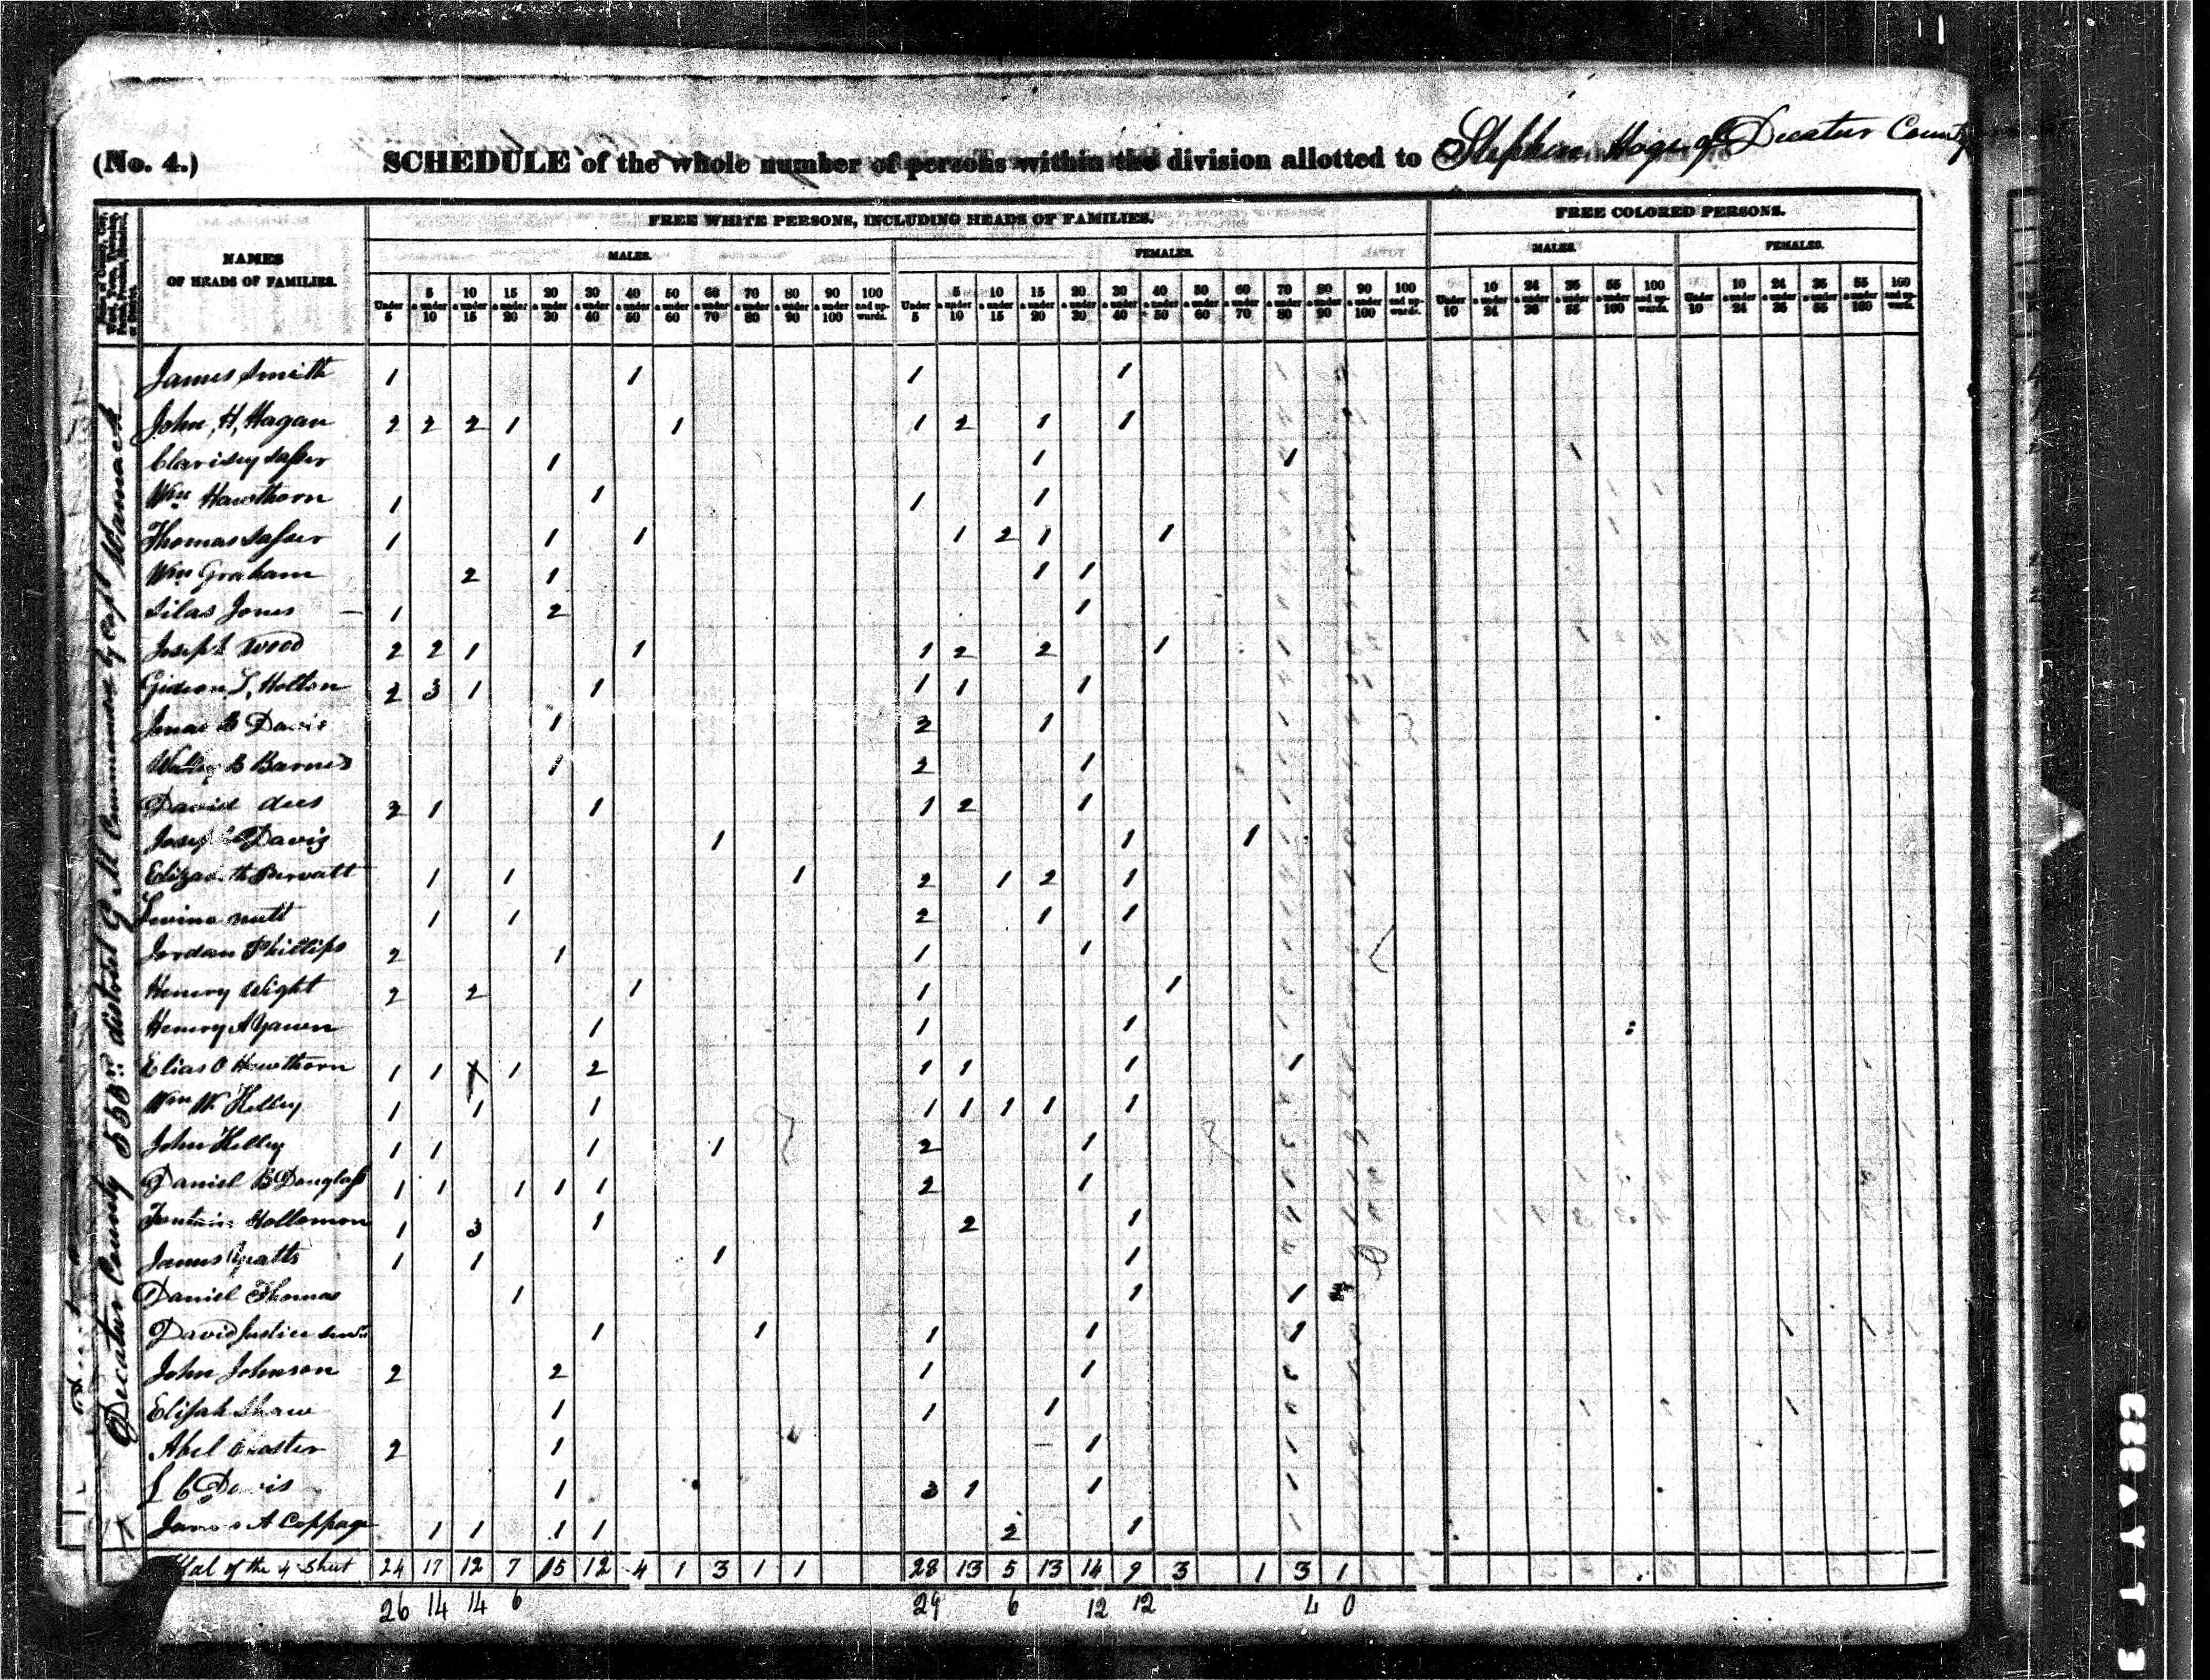 (No. 4.) SCHEDULE of the whole number of persons within the division allotted to Stephen of Decatur County
NAMES OF HEADS OF FAMILIES.
FREE WHITE PERSONS, INCLUDING HEADS OF FAMILIES.
FREE COLORED PERSONS.
MALES. FEMALES. MALES. FEMALES.
Under 5 | 5 & under 10 | 10 & under 15 | 15 & under 20 | 20 & under 30 | 30 & under 40 | 40 & under 50 | 50 & under 60 | 60 & under 70 | 70 & under 80 | 80 & under 90 | 90 & under 100 | 100 and upwards. | Under 5 | 5 & under 10 | 10 & under 15 | 15 & under 20 | 20 & under 30 | 30 & under 40 | 40 & under 50 | 50 & under 60 | 60 & under 70 | 70 & under 80 | 80 & under 90 | 90 & under 100 | 100 and upwards. | Under 10 | 10 & under 24 | 24 & under 36 | 36 & under 55 | 55 & under 100 | 100 and upwards. | Under 10 | 10 & under 24 | 24 & under 36 | 36 & under 55 | 55 & under 100 | 100 and upwards.
Decatur County 553rd district G M Commanded by Capt Wamack
James Smith 1 1 1 1
John, H, Hagan 2 2 2 1 1 1 2 1 1
Clarisey Sasser 1 1 1
Wm Hawthorn 1 1 1 1
Thomas Sasser 1 1 1 1 2 1 1
Wm Graham 2 1 1 1
Silas Jones 1 2 1
Joseph Wood 2 2 1 1 1 2 2 1
Gideon L, Holton 2 3 1 1 1 1 1
B Davis 1 2 1
B Barnes 1 2 1
David dees 2 1 1 1 2 1
Joseph Davis 1 1 1
Elizabeth 1 1 1 2 1 2 1
1 1 2 1 1
Jordan Phillips 2 1 1 1
Henry Wight 2 2 1 1 1
Henry A 1 1 1
Elias O Hawthorn 1 1 1 2 1 1 1 1
Wm W Kelley 1 1 1 1 1 1 1 1
John Kelley 1 1 1 1 2 1
Daniel B Douglass 1 1 1 1 1 2 1
Hollomon 1 3 1 2 1
James 1 1 1 1
Daniel Thomas 1 1 1
David Justice 1 1 1 1 1
John Johnson 2 2 1 1
Elijah Shaw 1 1 1
Abel 2 1 1
L C Davis 1 3 1 1
James A Coppage 1 1 1 1 2 1
Total of the 4 Sheet 24 17 12 7 15 12 4 1 3 1 1 28 13 5 13 14 9 3 1 3 1
26 14 14 6 29 6 12 12 4 0